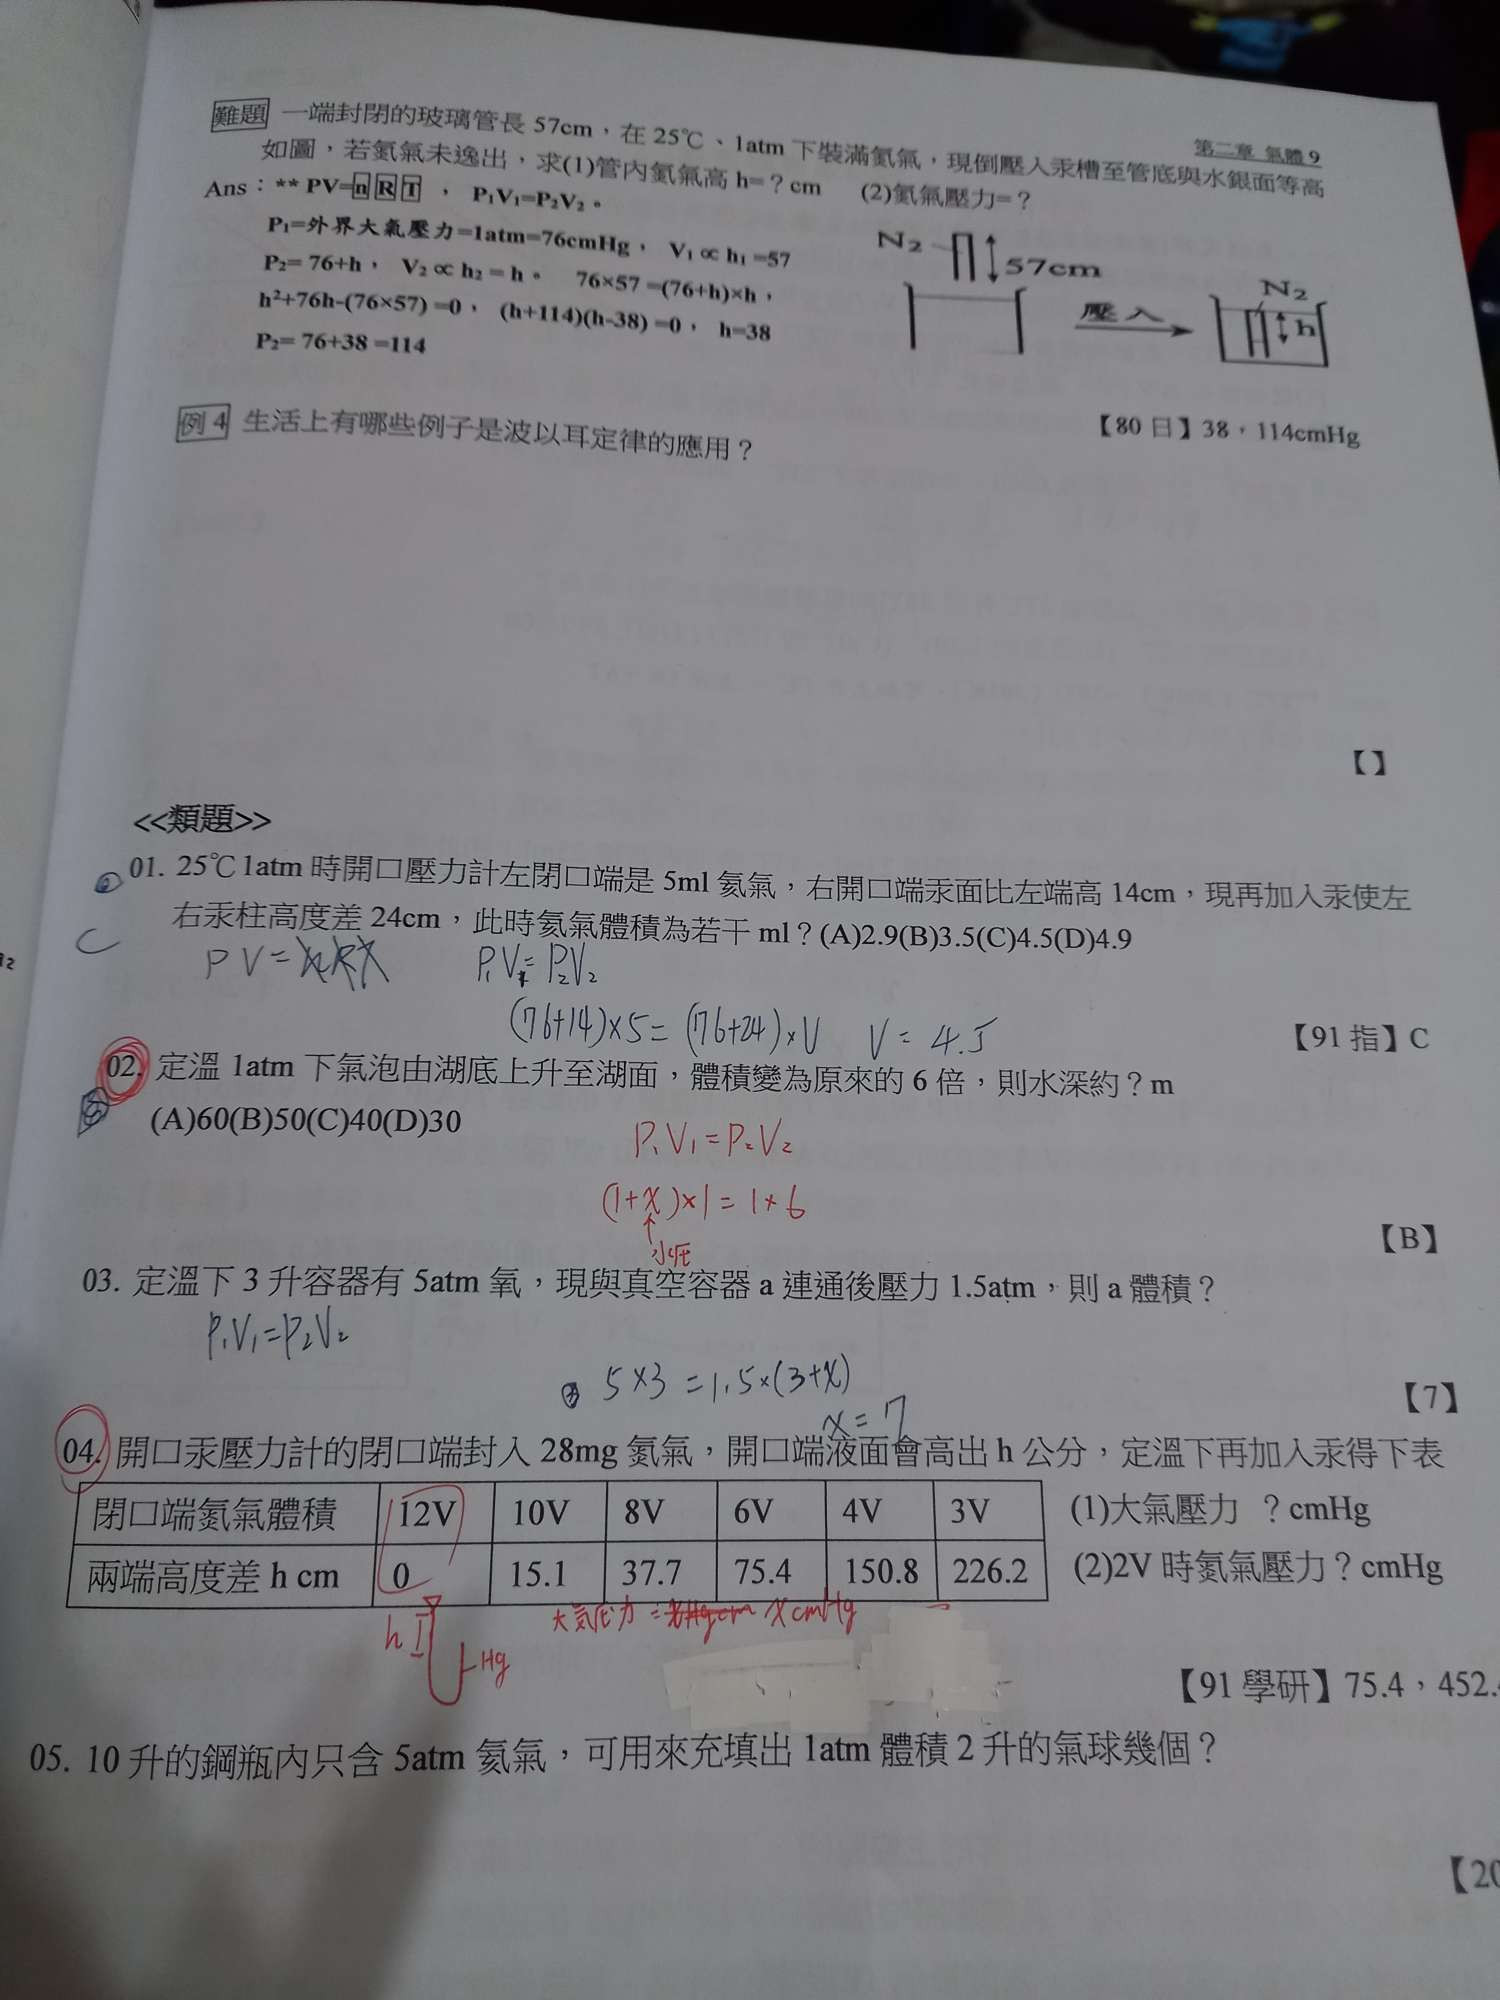 第二章 氣體 9
難題 一端封閉的玻璃管長 57cm，在 25℃、1atm 下裝滿氮氣，現倒壓入汞槽至管底與水銀面等高
如圖，若氮氣未逸出，求(1)管內氮氣高 h=？cm (2)氮氣壓力=？
Ans：** PV=nRT ， P₁V₁=P₂V₂。
P₁=外界大氣壓力=1atm=76cmHg， V₁∝h₁=57
P₂= 76+h， V₂∝h₂=h。 76×57 =(76+h)×h，
h²+76h-(76×57) =0， (h+114)(h-38) =0， h=38
P₂= 76+38 =114
N₂
57cm
壓入
N₂
h
【80 日】38，114cmHg
例 4 生活上有哪些例子是波以耳定律的應用？
【】
<<類題>>
01. 25℃ 1atm 時開口壓力計左閉口端是 5ml 氦氣，右開口端汞面比左端高 14cm，現再加入汞使左
右汞柱高度差 24cm，此時氦氣體積為若干 ml？(A)2.9(B)3.5(C)4.5(D)4.9
C
PV=nRT
P₁V₁=P₂V₂
(76+14)×5=(76+24)×V V=4.5
【91 指】C
02. 定溫 1atm 下氣泡由湖底上升至湖面，體積變為原來的 6 倍，則水深約？m
(A)60(B)50(C)40(D)30
P₁V₁=P₂V₂
(1+x)×1=1×6
↑
水压
【B】
03. 定溫下 3 升容器有 5atm 氧，現與真空容器 a 連通後壓力 1.5atm，則 a 體積？
P₁V₁=P₂V₂
5×3=1.5×(3+x)
x=7
【7】
04. 開口汞壓力計的閉口端封入 28mg 氮氣，開口端液面會高出 h 公分，定溫下再加入汞得下表
閉口端氮氣體積 12V 10V 8V 6V 4V 3V
兩端高度差 h cm 0 15.1 37.7 75.4 150.8 226.2
(1)大氣壓力 ？cmHg
(2)2V 時氮氣壓力？cmHg
大氣压力=xHgcm x cmHg
h
Hg
【91 學研】75.4，452.
05. 10 升的鋼瓶內只含 5atm 氦氣，可用來充填出 1atm 體積 2 升的氣球幾個？
【20